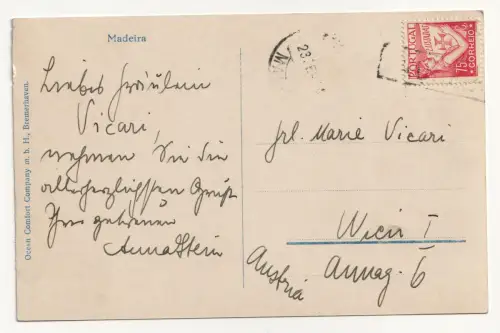 Madeira
Liebes Fräulein
Vicari,
nehmen Sie die
allerherzlichsten Grüße
Ihrer getreuen
Anna Stein
Frl. Marie Vicari
Wien I
Annag. 6
Austria
Ocean Comfort Company m. b. H., Bremerhaven.
PORTUGAL
75 c.
CORREIO
LUSIADAS
23.